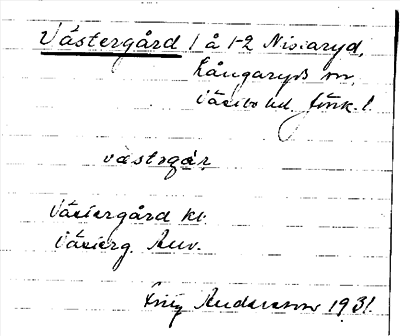 Västergård 1 å 1-2 Nissaryd,
Långaryds sn,
Västbo hd. Jönk. l.
västrgár
Västergård kv.
Västerg. Anv.
Andersson 1931.